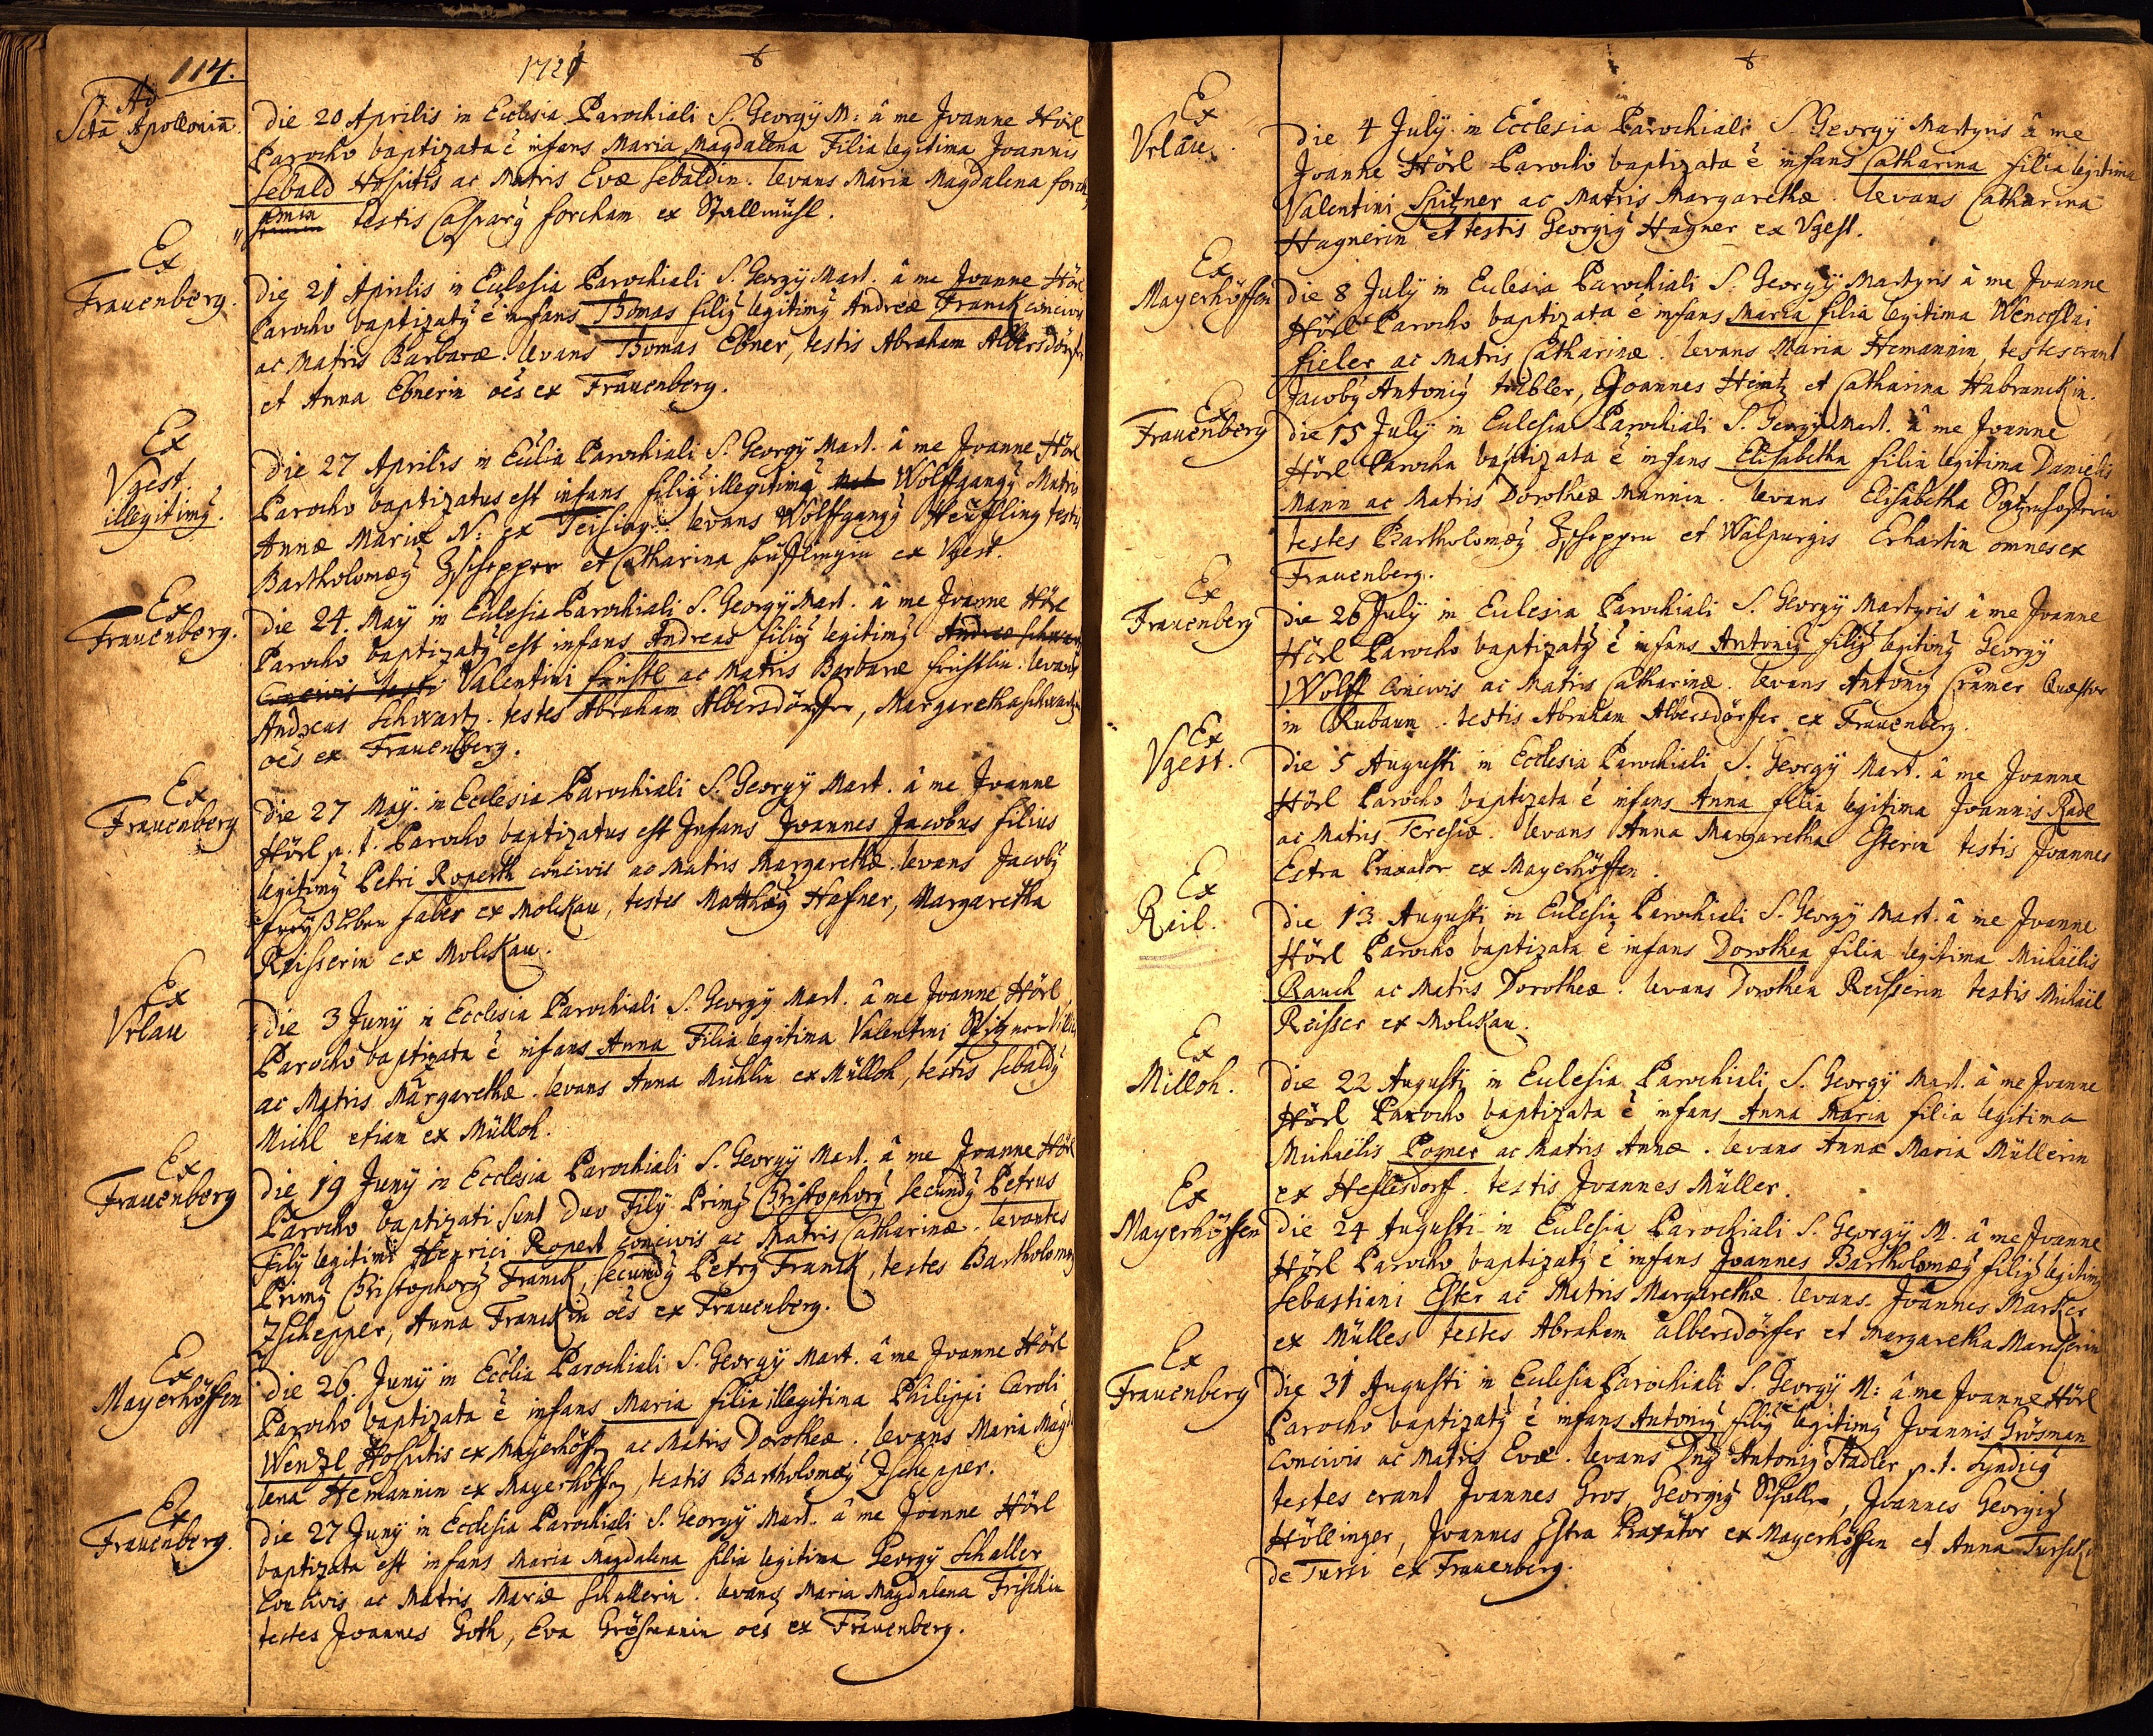 114.
1721
Ad
Sctã Apolloniã.
Die 20 Aprilis in Ecclesia Parochiali S. Georgÿ M: â me Joanne Hörl
Parocho baptizata ẽ infans Maria Magdalena Filia legitima Joannis
Sebald Hospitis ac Matris Evæ Sebaldin. levans Maria Magdalena forch
testis Casparÿ forcham ex Stallmühl.
Ex
Frauenberg.
Die 21 Aprilis in Ecclesia Parochiali S. Georgÿ Mart. â me Joanne Hörl
Parocho baptizatÿ ẽ infans Thomas filiÿ legitimÿ Andreæ Franck concivis
ac Matris Barbaræ. levans Thomas Ebner, testis Abraham Albersdörffer
et Anna Ebnerin oẽs ex Frauenberg.
Ex
Vgest.
illegitimÿ.
Die 27 Aprilis in Ecclia Parochiali S. Georgÿ Mart. â me Joanne Hörl
Parocho baptizatus est infans filiÿ illegitimÿ Wolffgangÿ Matris
Annæ Mariæ N: ex levans Wolffgangÿ testis
Bartholomæÿ Zschepper et Catharina ex Vgest.
Ex
Frauenberg.
Die 24 Maÿ in Ecclesia Parochiali S. Georgÿ Mart. â me Joanne Hörl
Parocho baptizatÿ est infans Andreas filiÿ legitimÿ Andreæ Schwartz
Concivis testi Valentini ac Matris Barbaræ levans
Andreas Schwartz. testes Abraham Albersdörffer, Margaretha Schwartzin
oẽs ex Frauenberg.
Ex
Frauenberg
Die 27 Maÿ. in Ecclesia Parochiali S. Georgÿ Mart. â me Joanne
Hörl p. t. Parocho baptizatus est Infans Joannes Jacobus filius
legitimÿ Petri Roperth concivis ac Matris Margarethæ. levans Jacobÿ
faber ex Molckau, testes Matthæÿ Hafner, Margaretha
Reisserin ex Molckau.
Ex
Vrlau
Die 3 Junÿ in Ecclesia Parochiali S. Georgÿ Mart. â me Joanne Hörl
Parocho baptizata ẽ infans Anna Filia legitima Valentini Spitzner
ac Matris Margarethæ. levans Anna Michlin ex Mülloh, testis Sebaldÿ
Michl etiam ex Mülloh.
Ex
Frauenberg
Die 19 Junÿ in Ecclesia Parochiali S. Georgÿ Mart. â me Joanne Hörl
Parocho baptizati sunt Duo Filÿ Primÿ Christophorÿ Secundÿ Petrus
Filÿ legitimi Henrici Ropert concivis ac Matris Catharinæ. levantes
Primÿ Christophorÿ Franck, Secundÿ Petrÿ Franck, testes Bartholomæÿ
Zschepper, Anna Franckin oẽs ex Frauenberg.
Ex
Mayerhöffen
Die 26. Junÿ in Ecclia Parochiali S. Georgÿ Mart. â me Joanne Hörl
Parocho baptizata ẽ infans Maria filia illegitima Philippi Caroli
Wenzl Hospitis ex Mayerhöffen ac Matris Dorotheæ. levans Maria Magda
lena Hemannin ex Mayerhöffen, testis Bartholomæÿ Zschepper.
Ex
Frauenberg.
Die 27 Junÿ in Ecclesia Parochiali S. Georgÿ Mart. â me Joanne Hörl
baptizata est infans Maria Magdalena filia legitima Georgÿ Schaller
Concivis ac Matris Mariæ Schallerin. levans Maria Magdalena Frischin
testes Joannes Goth, Eva Grösmanin oẽs ex Frauenberg.
Ex
Vrlau.
Die 4 Julÿ in Ecclesia Parochiali S. Georgÿ Martyris â me
Joanne Hörl Parocho baptizata ẽ infans Catharina filia legitima
Valentini Spitzner ac Matris Margarethæ. levans Catharina
Hagnerin et testis Georgiÿ Hagner ex Vgest.
Ex
Mayerhöffen
Die 8 Julÿ in Ecclesia Parochiali S. Georgÿ Martyris â me Joanne
Hörl Parocho baptizata ẽ infans Maria filia legitima Wenceslai
fieler ac Matris Catharinæ. levans Maria Hemannin, testes erant
Jacobÿ Antoniÿ Joannes Heintz et Catharina Habranckin.
Ex
Frauenberg
Die 15 Julÿ in Ecclesia Parochiali S. Georgÿ Mart. â me Joanne
Hörl Parocho baptizata ẽ infans Elisabetha filia legitima Danielis
Mann ac Matris Dorotheæ Mannin. levans Elisabetha
testes Bartholomæÿ Zschepper et Walpurgis Erhartin omnes ex
Frauenberg.
Ex
Frauenberg
Die 26 Julÿ in Ecclesia Parochiali S. Georgÿ Martyris â me Joanne
Hörl Parocho baptizatÿ ẽ infans Antoniÿ filiÿ legitimÿ Georgÿ
Wolff Concivis ac Matris Catharinæ. levans Antoniÿ Cramer Quæstor
in Kubaum. testis Abraham Albersdörffer ex Frauenberg.
Ex
Vgest.
Die 5 Augusti in Ecclesia Parochiali S. Georgÿ Mart. â me Joanne
Hörl Parocho baptizata ẽ infans Anna filia legitima Joannis Radl
ac Matris Teresiæ. levans Anna Margaretha Esterin testis Joannes
Estra Praxator ex Mayerhöffen.
Ex
Rail.
Die 13 Augusti in Ecclesia Parochiali S. Georgÿ Mart. â me Joanne
Hörl Parocho baptizata ẽ infans Dorothea filia legitima Michaëlis
Rauch ac Matris Dorotheæ. levans Dorothea Reisserin testis Michaël
Reisser ex Molckau.
Ex
Milloh.
Die 22 Augusti in Ecclesia Parochiali S. Georgÿ Mart. â me Joanne
Hörl Parocho baptizata ẽ infans Anna Maria filia legitima
Michaëlis Pogner ac Matris Annæ. levans Anna Maria Müllerin
ex Heslesdorf. testis Joannes Müller.
Ex
Mayerhöffen
Die 24 Augusti in Ecclesia Parochiali S. Georgÿ M. â me Joanne
Hörl Parocho baptizatÿ ẽ infans Joannes Bartholomæÿ filiÿ legitimÿ
Sebastiani Ester ac Matris Margarethæ. levans Joannes Marcker
ex Mülles testes Abraham albersdörffer et Margaretha Marckerin
Ex
Frauenberg
Die 31 Augusti in Ecclesia Parochiali S. Georgÿ M: â me Joanne Hörl
Parocho baptizatÿ ẽ infans Antoniÿ filiÿ legitimÿ Joannis Grösman
Concivis ac Matris Evæ. levans Dnÿ Antoniÿ Stadler p. t. Syndicÿ
testes erant Joannes Gros, Georgiÿ Schaller, Joannes Georgiÿ
Höllinger, Joannes Estra Praxator ex Mayerhöffen et Anna
de Turri ex Frauenberg.